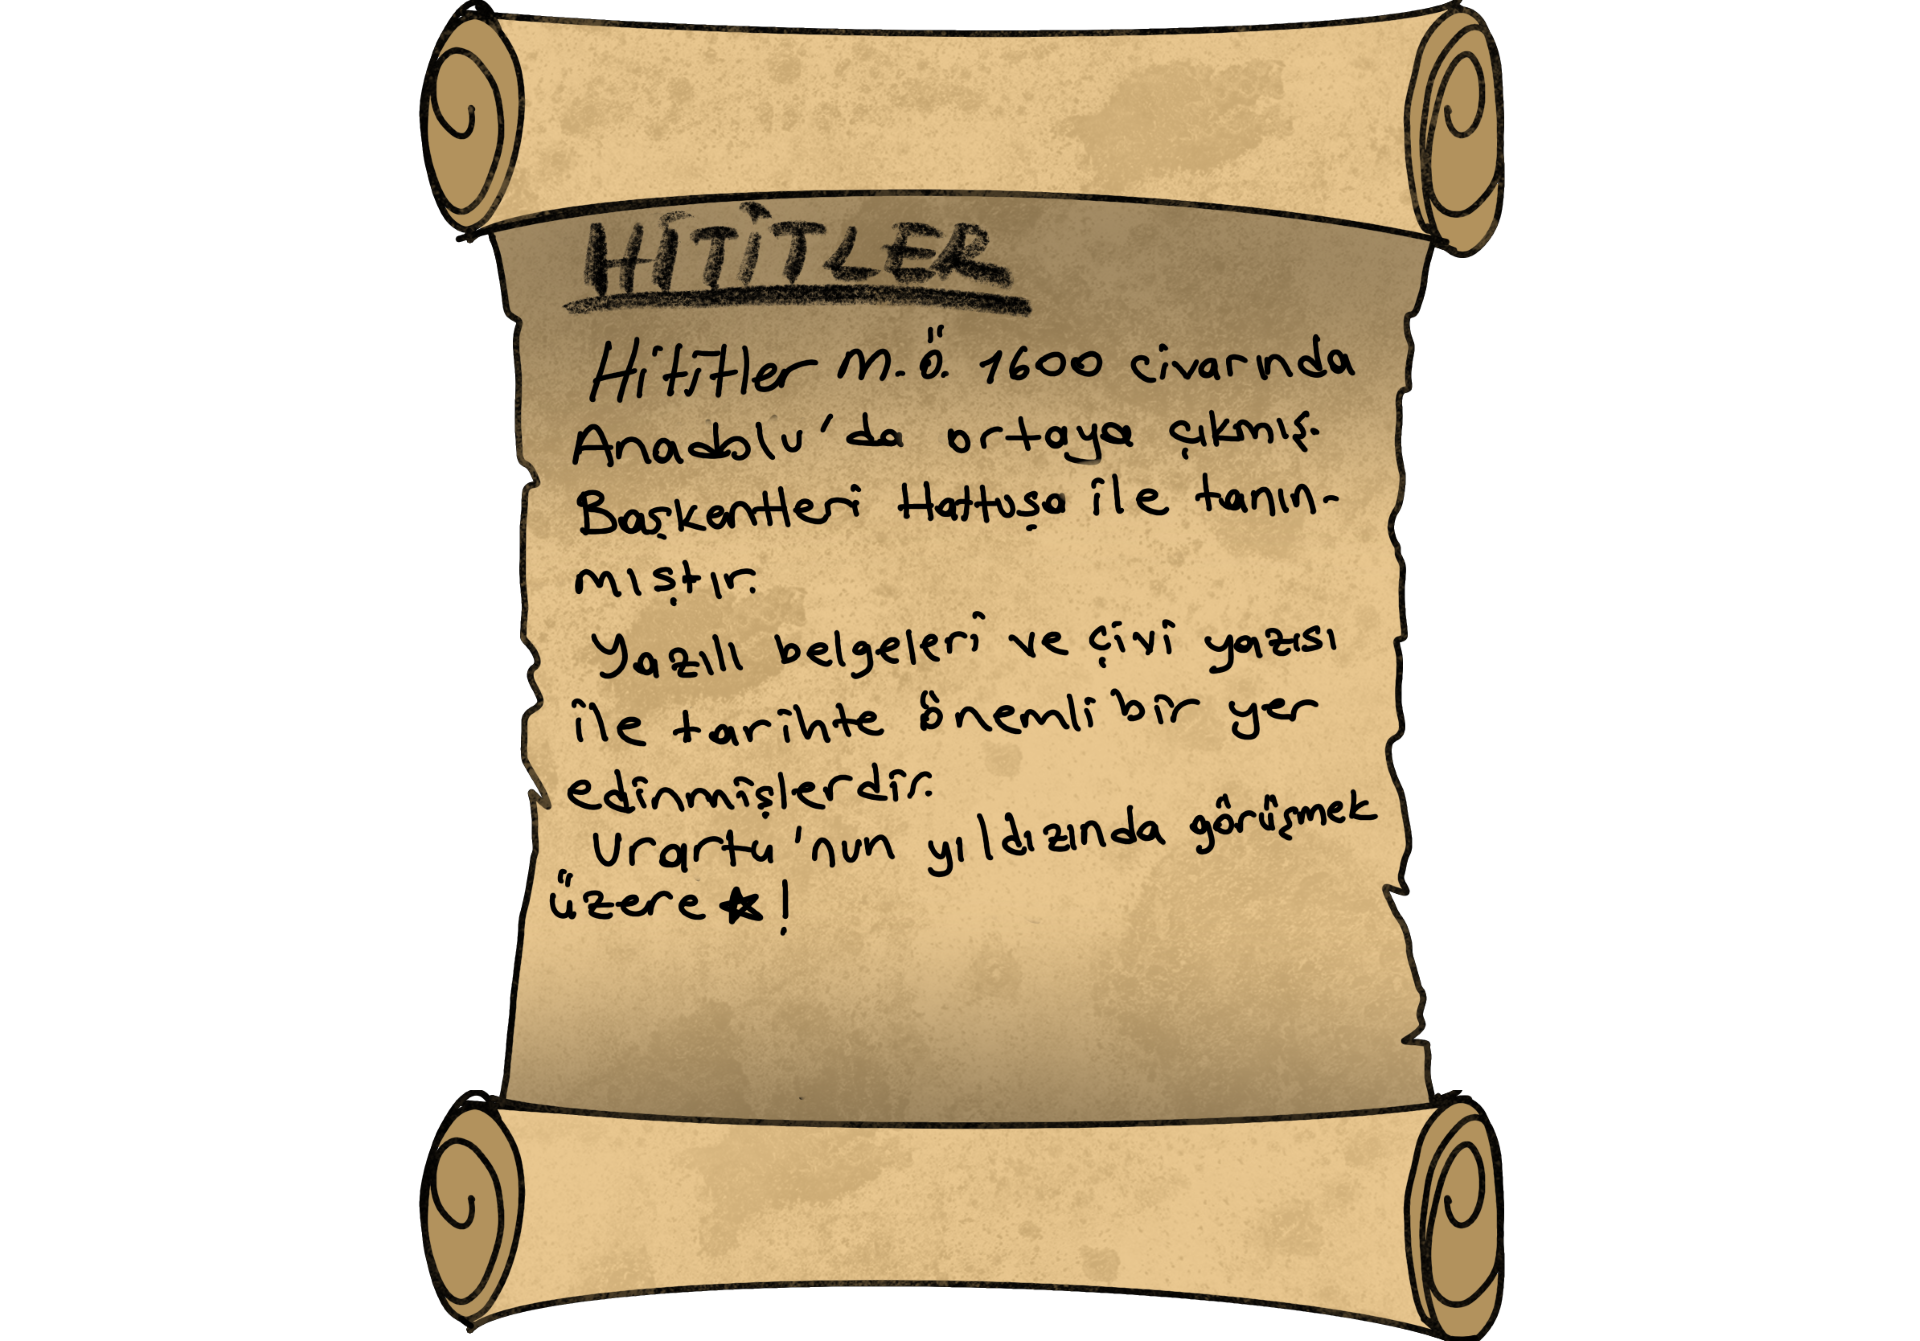 HİTİTLER
Hititler M.Ö. 1600 civarında
Anadolu'da ortaya çıkmış.
Başkentleri Hattuşa ile tanın-
mıştır.
Yazılı belgeleri ve çivi yazısı
ile tarihte önemli bir yer
edinmişlerdir.
Urartu'nun yıldızında görüşmek
üzere ★!